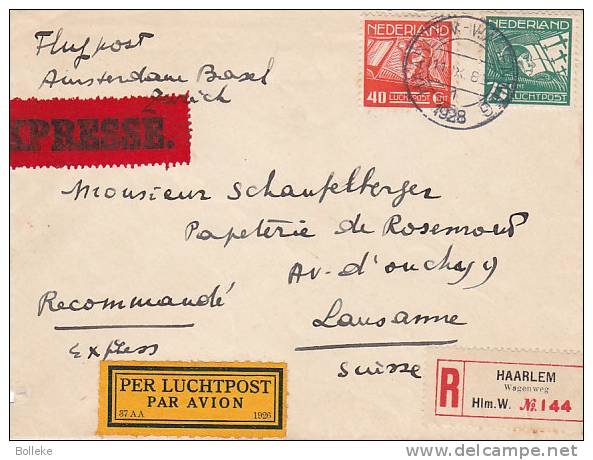 Flugpost
Amsterdam Basel
Zurich
EXPRESSE.
NEDERLAND
40 CENT
LUCHTPOST
NEDERLAND
LUCHTPOST
1928
Monsieur Schaufelberger
Papeterie de Rosemont
Av. d'ouchy 9
Lausanne
Suisse
Recommandé
Express
PER LUCHTPOST
PAR AVION
37 AA 1926
R
HAARLEM
Wagenweg
Hlm. W. No. 144
Bolleke
delcampe.net